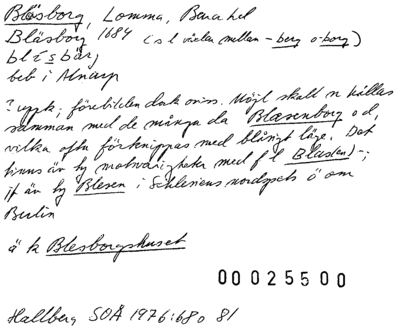 Bläsborg, Lomma, Bara hd
Bläsborg 1684 (s l växlar mellan -berg o -borg)
blǽsbar,
beb i Alnarp
? uppk; förebilden dock oviss. Möjl skall n hållas
samman med de många da Blæsenborg o d,
vilka ofta förknippas med blåsigt läge. Det
finns äv ty motsvarigheter med f l Blasen)-;
jf äv ty Blesen i Schlesiens nordspets ö om
Berlin
ä k Blesborgshuset
00025500
Hallberg SOÄ 1976:68 o 81